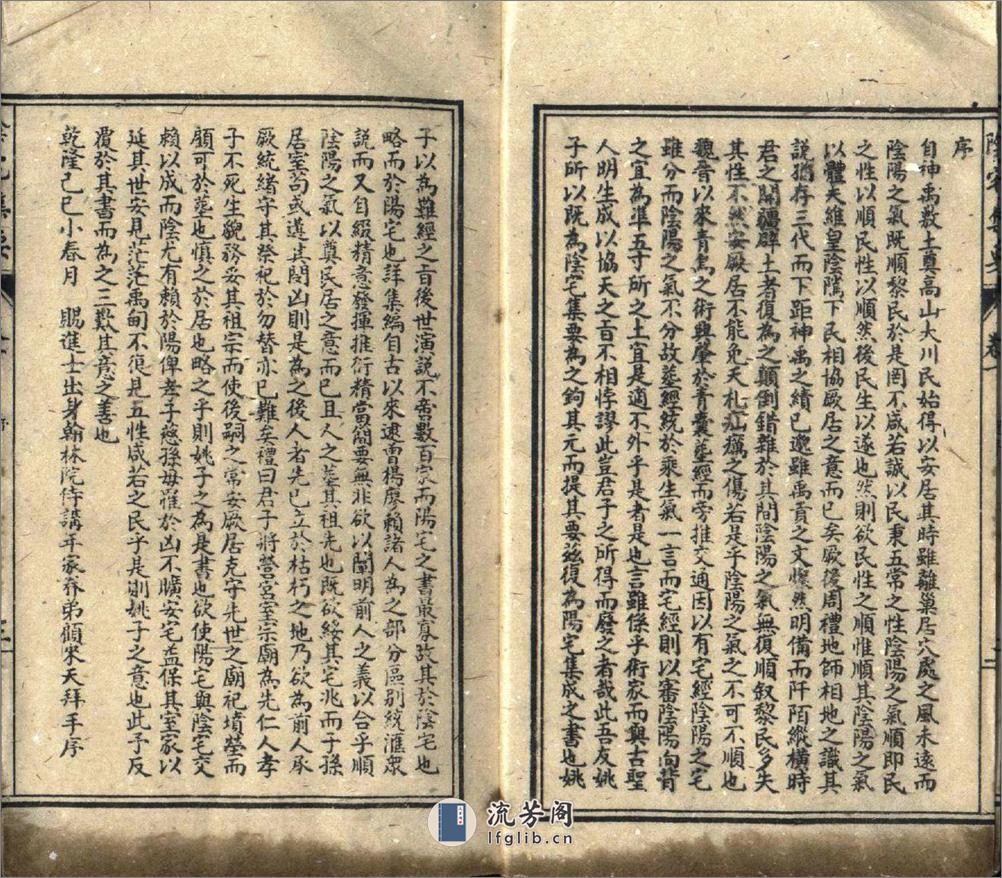 序
自神禹敷土奠高山大川民始得以安居其時雖離巢居穴處之風未遠而
陰陽之氣既順黎民於是罔不咸若誠以民秉五常之性陰陽之氣順即民
之性以順民性以順然後民生以遂也然則欲民性之順惟順其陰陽之氣
以體天維皇陰隲下民相協厥居之意而已矣厥後周禮地師相地之識其
說猶存三代而下距神禹之績已邈雖禹貢之文燦然明備而阡陌縱橫時
君之開疆辟土者復為之顛倒錯雜於其間陰陽之氣無復順叙黎民多失
其性不然安厥居不能免夭札疝癘之傷若是乎陰陽之氣之不可不順也
魏晉以來青烏之術興肇於青囊葬經而旁推交通因以有宅經陰陽之宅
雖分而陰陽之氣不分故葬經統於乘生氣一言而宅經則以審陰陽向背
之宜為準五寸所之土宜是適不外乎是者是也言雖係乎術家而與古聖
人明生成以協天之旨不相悖謬此豈君子之所得而廢之者哉此吾友姚
子所以既為陰宅集要為之鉤其元而提其要茲復為陽宅集成之書也姚
子以為難經之旨後世演說不啻數百家而陽宅之書最寡故其於陰宅也
略而於陽宅也詳集編自古以來逮曾楊廖賴諸人為之部分區別統滙眾
說而又自綴精意發揮推衍精當簡要無非欲以闡明前人之義以合乎順
陰陽之氣以奠民居之意而已且人之葬其祖先也既欲綏其宅兆而于孫
居室苟或遘其閔凶則是為之後人者先已立於枯朽之地乃欲為前人承
厥統緒守其祭祀於勿替亦已難矣禮曰君子將營宮室宗廟為先仁人孝
子不死生貌務妥其祖宗而使後嗣之常安厥居克守先世之廟祀墳塋而
顧可於墓也慎之於居也略之乎則姚子之為是書也欲使陽宅與陰宅交
賴以成而陰尤有賴於陽俾孝子慈孫毋罹於凶不曠安宅益保其室家以
延其世安見茫茫禹甸不復見五性咸若之民乎是則姚子之意也此予反
覆於其書而為之三歎其意之善也
乾隆己巳小春月　賜進士出身翰林院侍講年家眷弟顧宋天拜手序
流芳阁
lfglib.cn